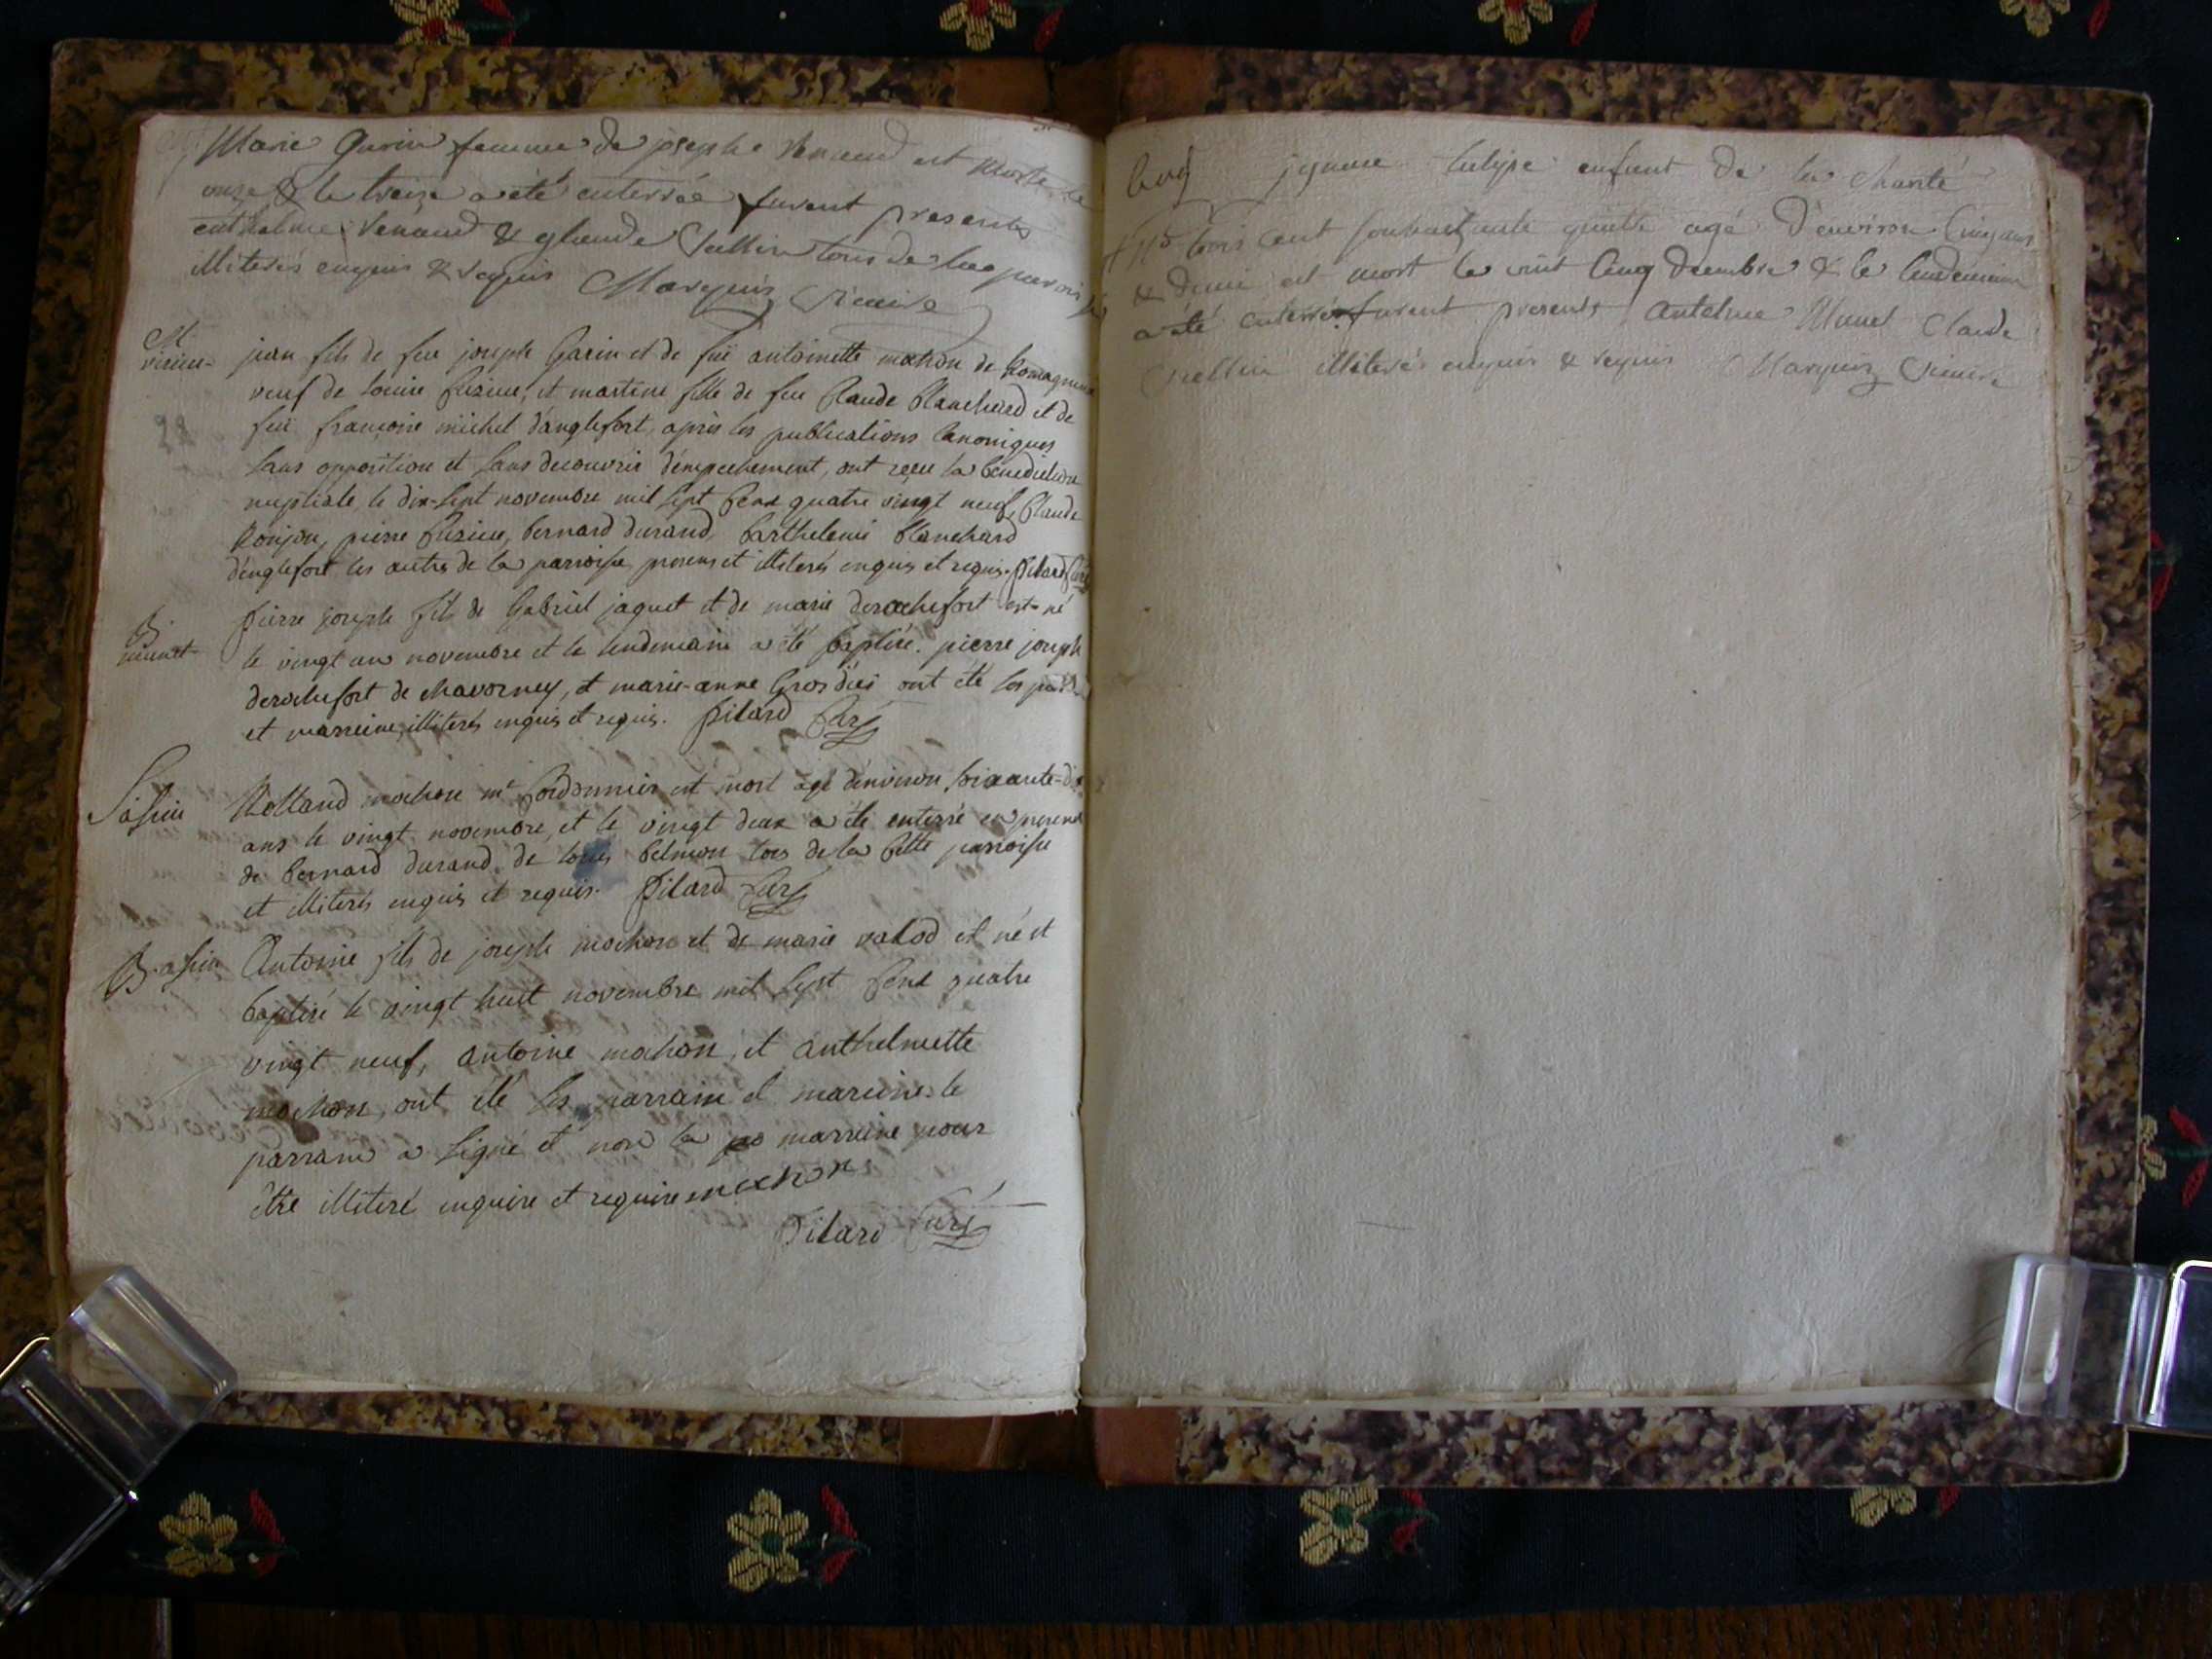 Marie Garin femme de joseph Renaud est morte le
onze & le treize a été enterrée furent presents
anthelme Renaud & glaude Vallin tous de la parois
illiterés enquis & requis Marquis Vicaire
M
vieux
jean fils de feu joseph Garin et de fuë antoinette mahon de Romagnieu
veuf de louise cusieu, et martine fille de feu Claude Blanchard et de
fuë françoise michel d'anglefort, après les publications canoniques
sans opposition et sans decouvrir d'empechement, ont reçu la benediction
nuptiale le dix-sept novembre mil sept cent quatre vingt neuf, Claude
pierre cusieu, bernard durand, barthelemi blanchard
d'englefort les autres de la parroisse presens et illiterés enquis et requis. Pilard Curé
B
pierre joseph fils de Gabriel jaquet et de marie derochefort est né
le vingt un novembre et le lendemain a été baptisé. pierre joseph
derochefort de chavorney, et marie-anne ont été les
et marreine illiterés enquis et requis. Pilard Curé
S
Rolland mochon mt Cordonnier est mort agé d'environ soixante-dix
ans le vingt novembre, et le vingt deux a été enterré en presence
de bernard durand, de louis belmon tous de la ditte parroisse
et illiterés enquis et requis. Pilard Curé
B
Antoine fils de joseph mochon et de marie valod est né et
baptisé le vingt huit novembre mil sept cent quatre
vingt neuf, antoine mochon, et anthelmette
mochon, ont été les parrain et marreine. le
parrain a signé et non la marreine pour
être illiteré enquise et requise mochon
Pilard Curé
enfant de la charité
trois cent agé d'environ cinq ans
& demi est mort le vint cinq decembre & le lendemain
a été enterré furent presents antelme Claude
Vallin illiterés enquis & requis Marquis Vicaire